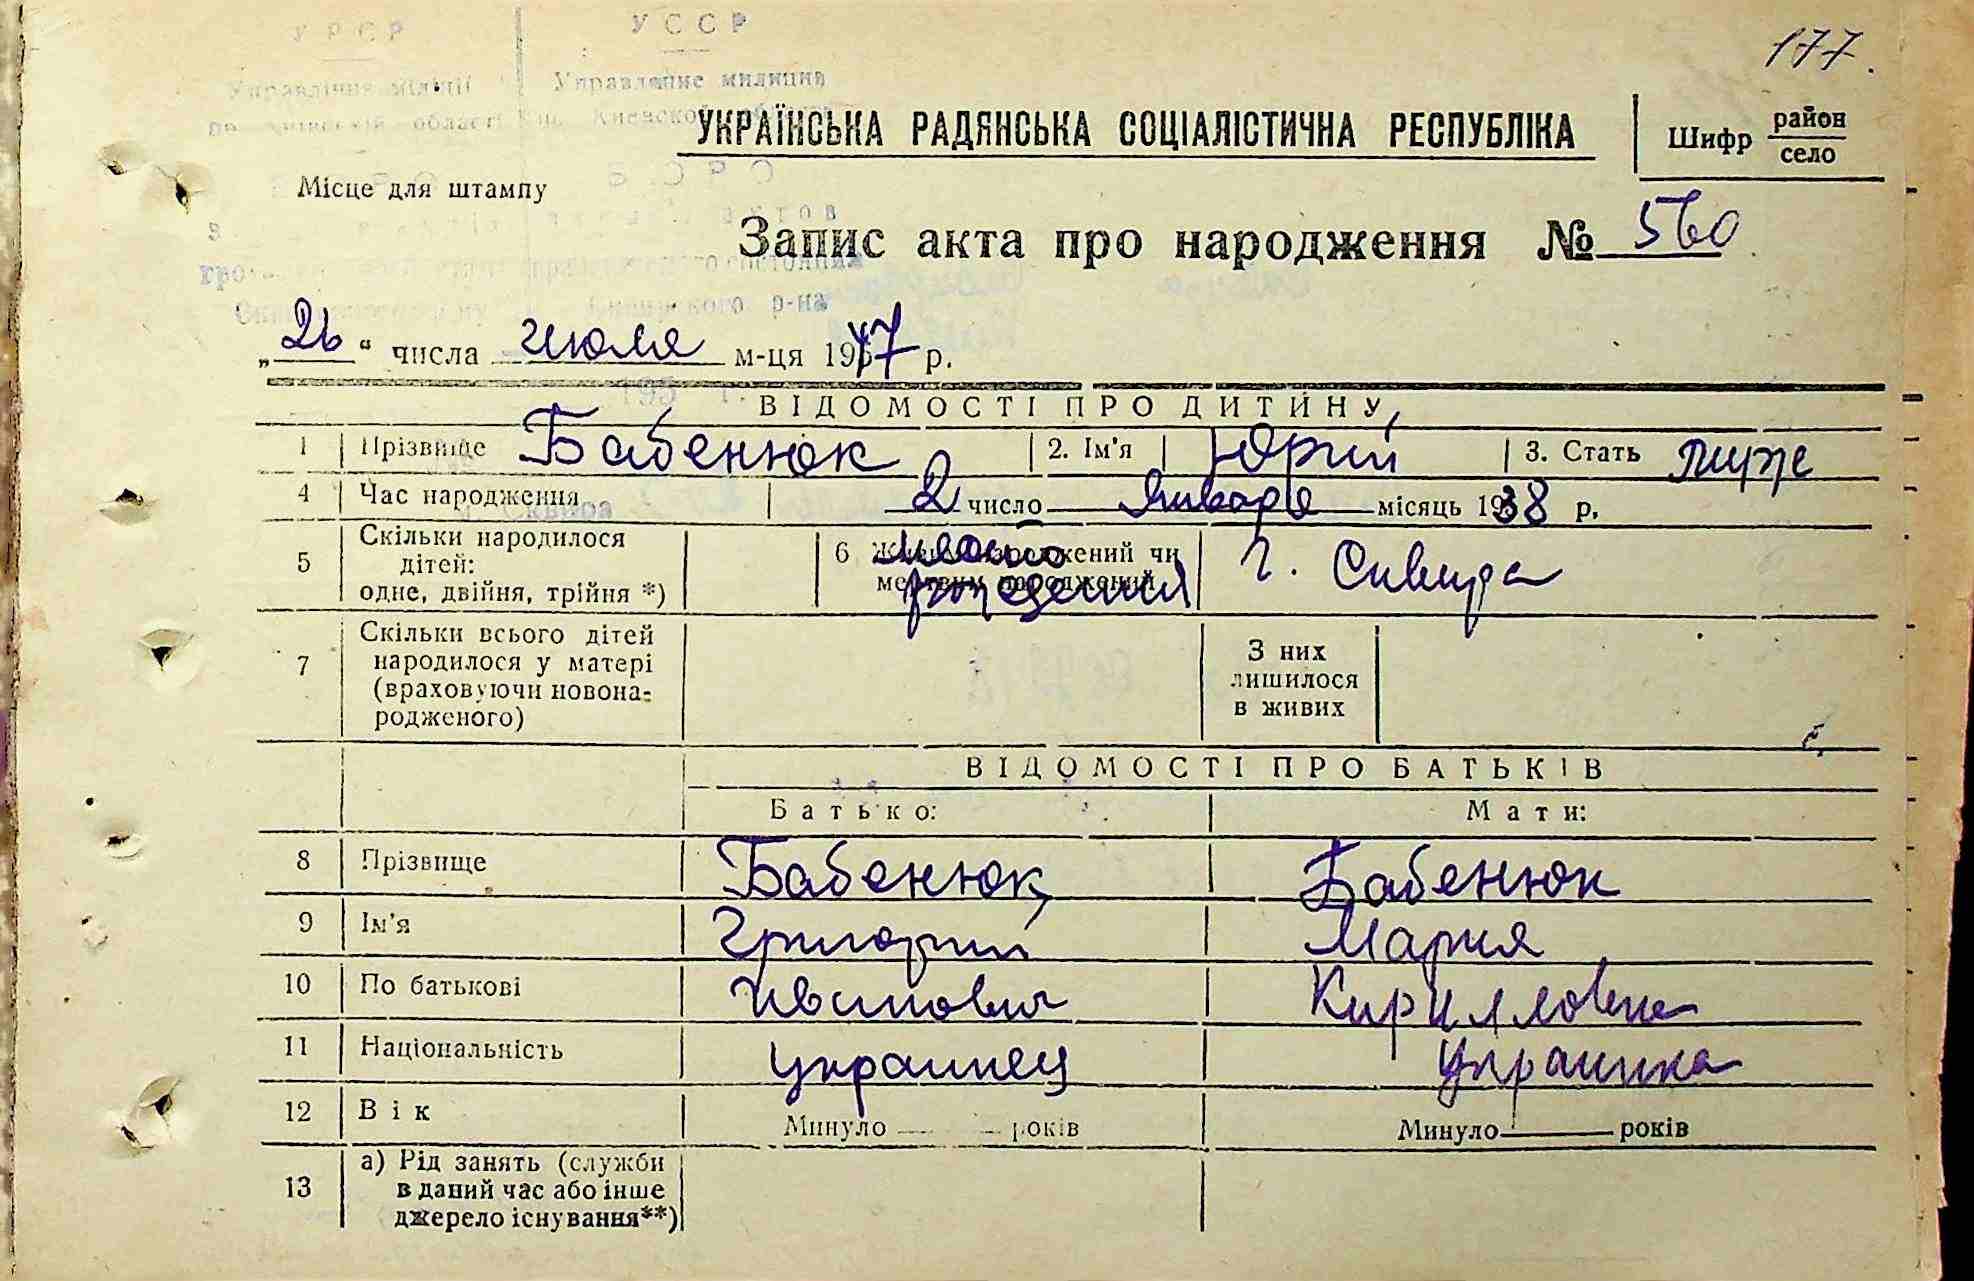 УРСР УССР
177.
Управління міліції Управление милиции
по Київській області по Киевской области
УКРАЇНСЬКА РАДЯНСЬКА СОЦІАЛІСТИЧНА РЕСПУБЛІКА
Шифр район село
БЮРО
Місце для штампу
Запис акта про народження № 560
р-на
„26“ числа июля м-ця 1947 р.
195 г.
ВІДОМОСТІ ПРО ДИТИНУ
1 Прізвище Бабенюк 2. Ім'я Юрий 3. Стать муж
4 Час народження 2 число Января місяць 1938 р.
г. Сквира
5 Скільки народилося дітей: одне, двійня, трійня *) 6 Живим народжений чи мертвим народжений место рождения г. Сквира
7 Скільки всього дітей народилося у матері (враховуючи новонародженого) З них лишилося в живих
ВІДОМОСТІ ПРО БАТЬКІВ
Батько: Мати:
8 Прізвище Бабенюк Бабенюк
9 Ім'я Григорий Мария
10 По батькові Иванович Кирилловна
11 Національність украинец украинка
12 Вік Минуло — років Минуло — років
13 а) Рід занять (служби
в даний час або інше
джерело існування**)